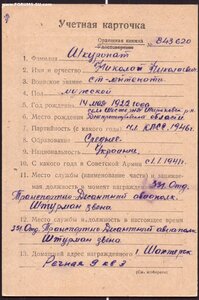 WWW.FORUM-SSSR
Учетная карточка
Орденская книжка
Удостоверение № 843620
1. Фамилия Шкурпат
2. Имя и отчество Николай Николаевич
3. Воинское звание ст-лейтенант
4. Пол мужской
5. Год рождения 14 мая 1922 года
6. Место рождения Днепропетровской области
7. Партийность (с какого года) Чл. КПСС 1946г.
8. Образование Среднее.
9. Национальность Украинец.
10. С какого года в Советской Армии с 1941г.
11. Место службы (наименование части) и занимае-
мая должность в момент награждения 331 Отд.
Транспортно Десантный авиаполк.
Штурман звена
12. Место службы и должность в настоящее время
331 Отд. Транспортно Десантный авиаполк
Штурман звена
13. Домашний адрес награжденного г. Шахтерск
Речная 9 кв 3
(См. на обороте)